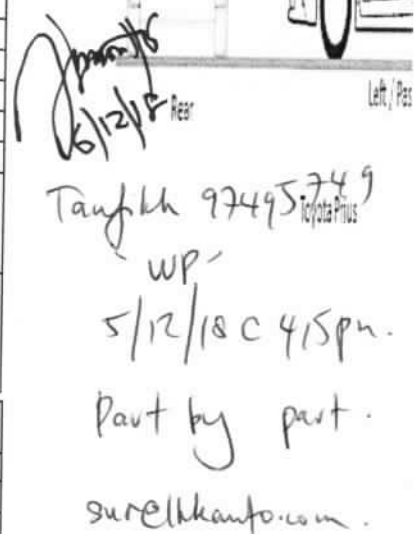 6/12/18
Rear
Left / Pas
Taufikh 97495749
Toyota Prius
WP
5/12/18 @ 415pm.
Part by part.
sur@lkkauto.com.